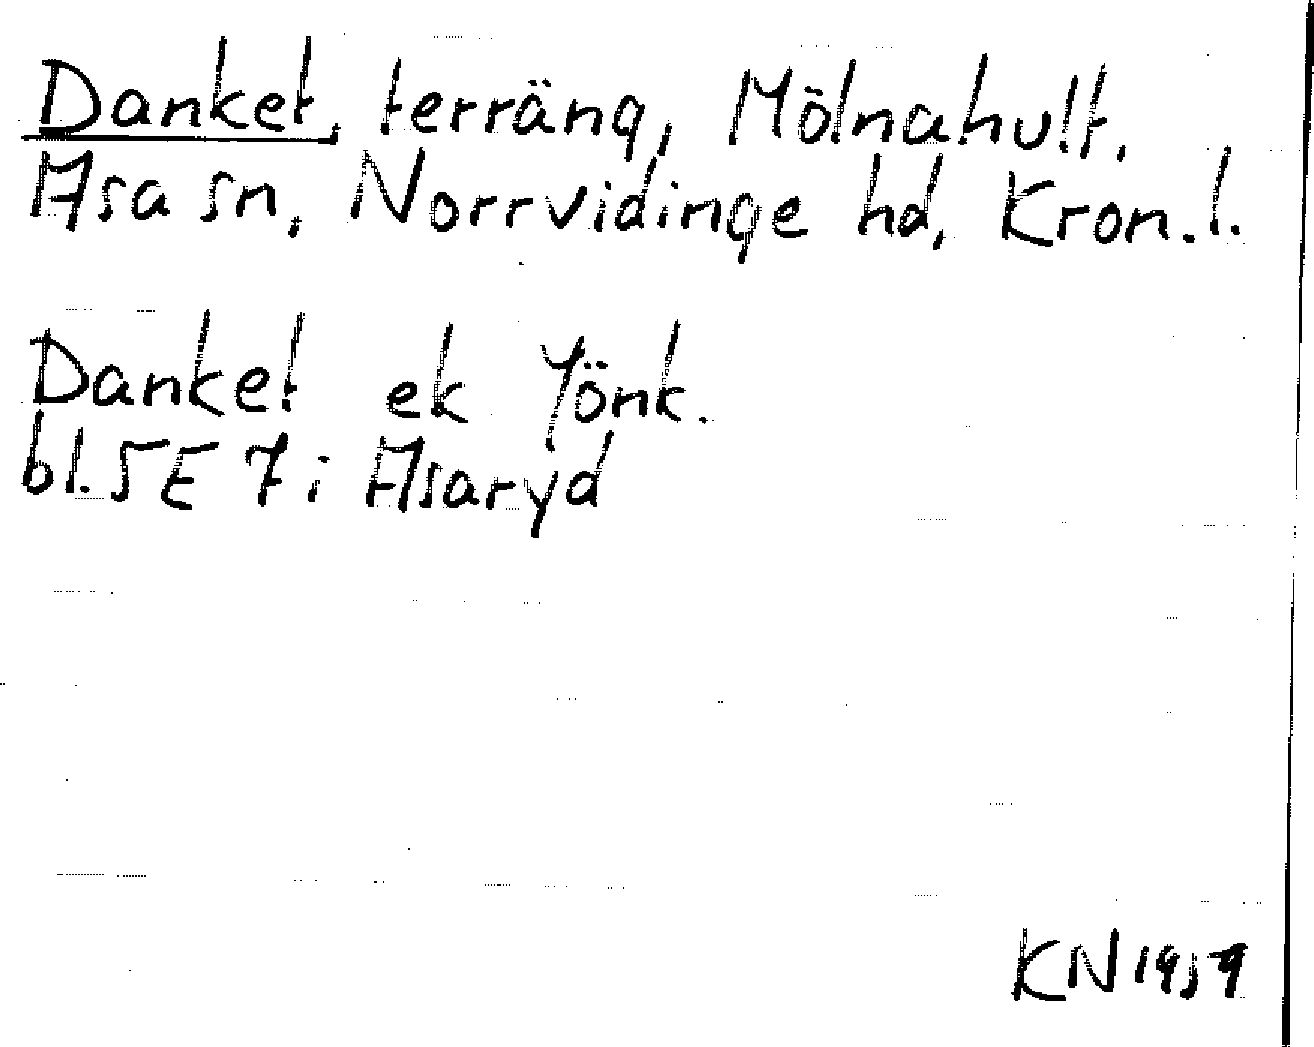 Danket, terräng, Mölnahult,
Asa sn, Norrvidinge hd, Kron.l.
Danket ek Jönk.
bl. 5E 7 i Asaryd
KN 1959